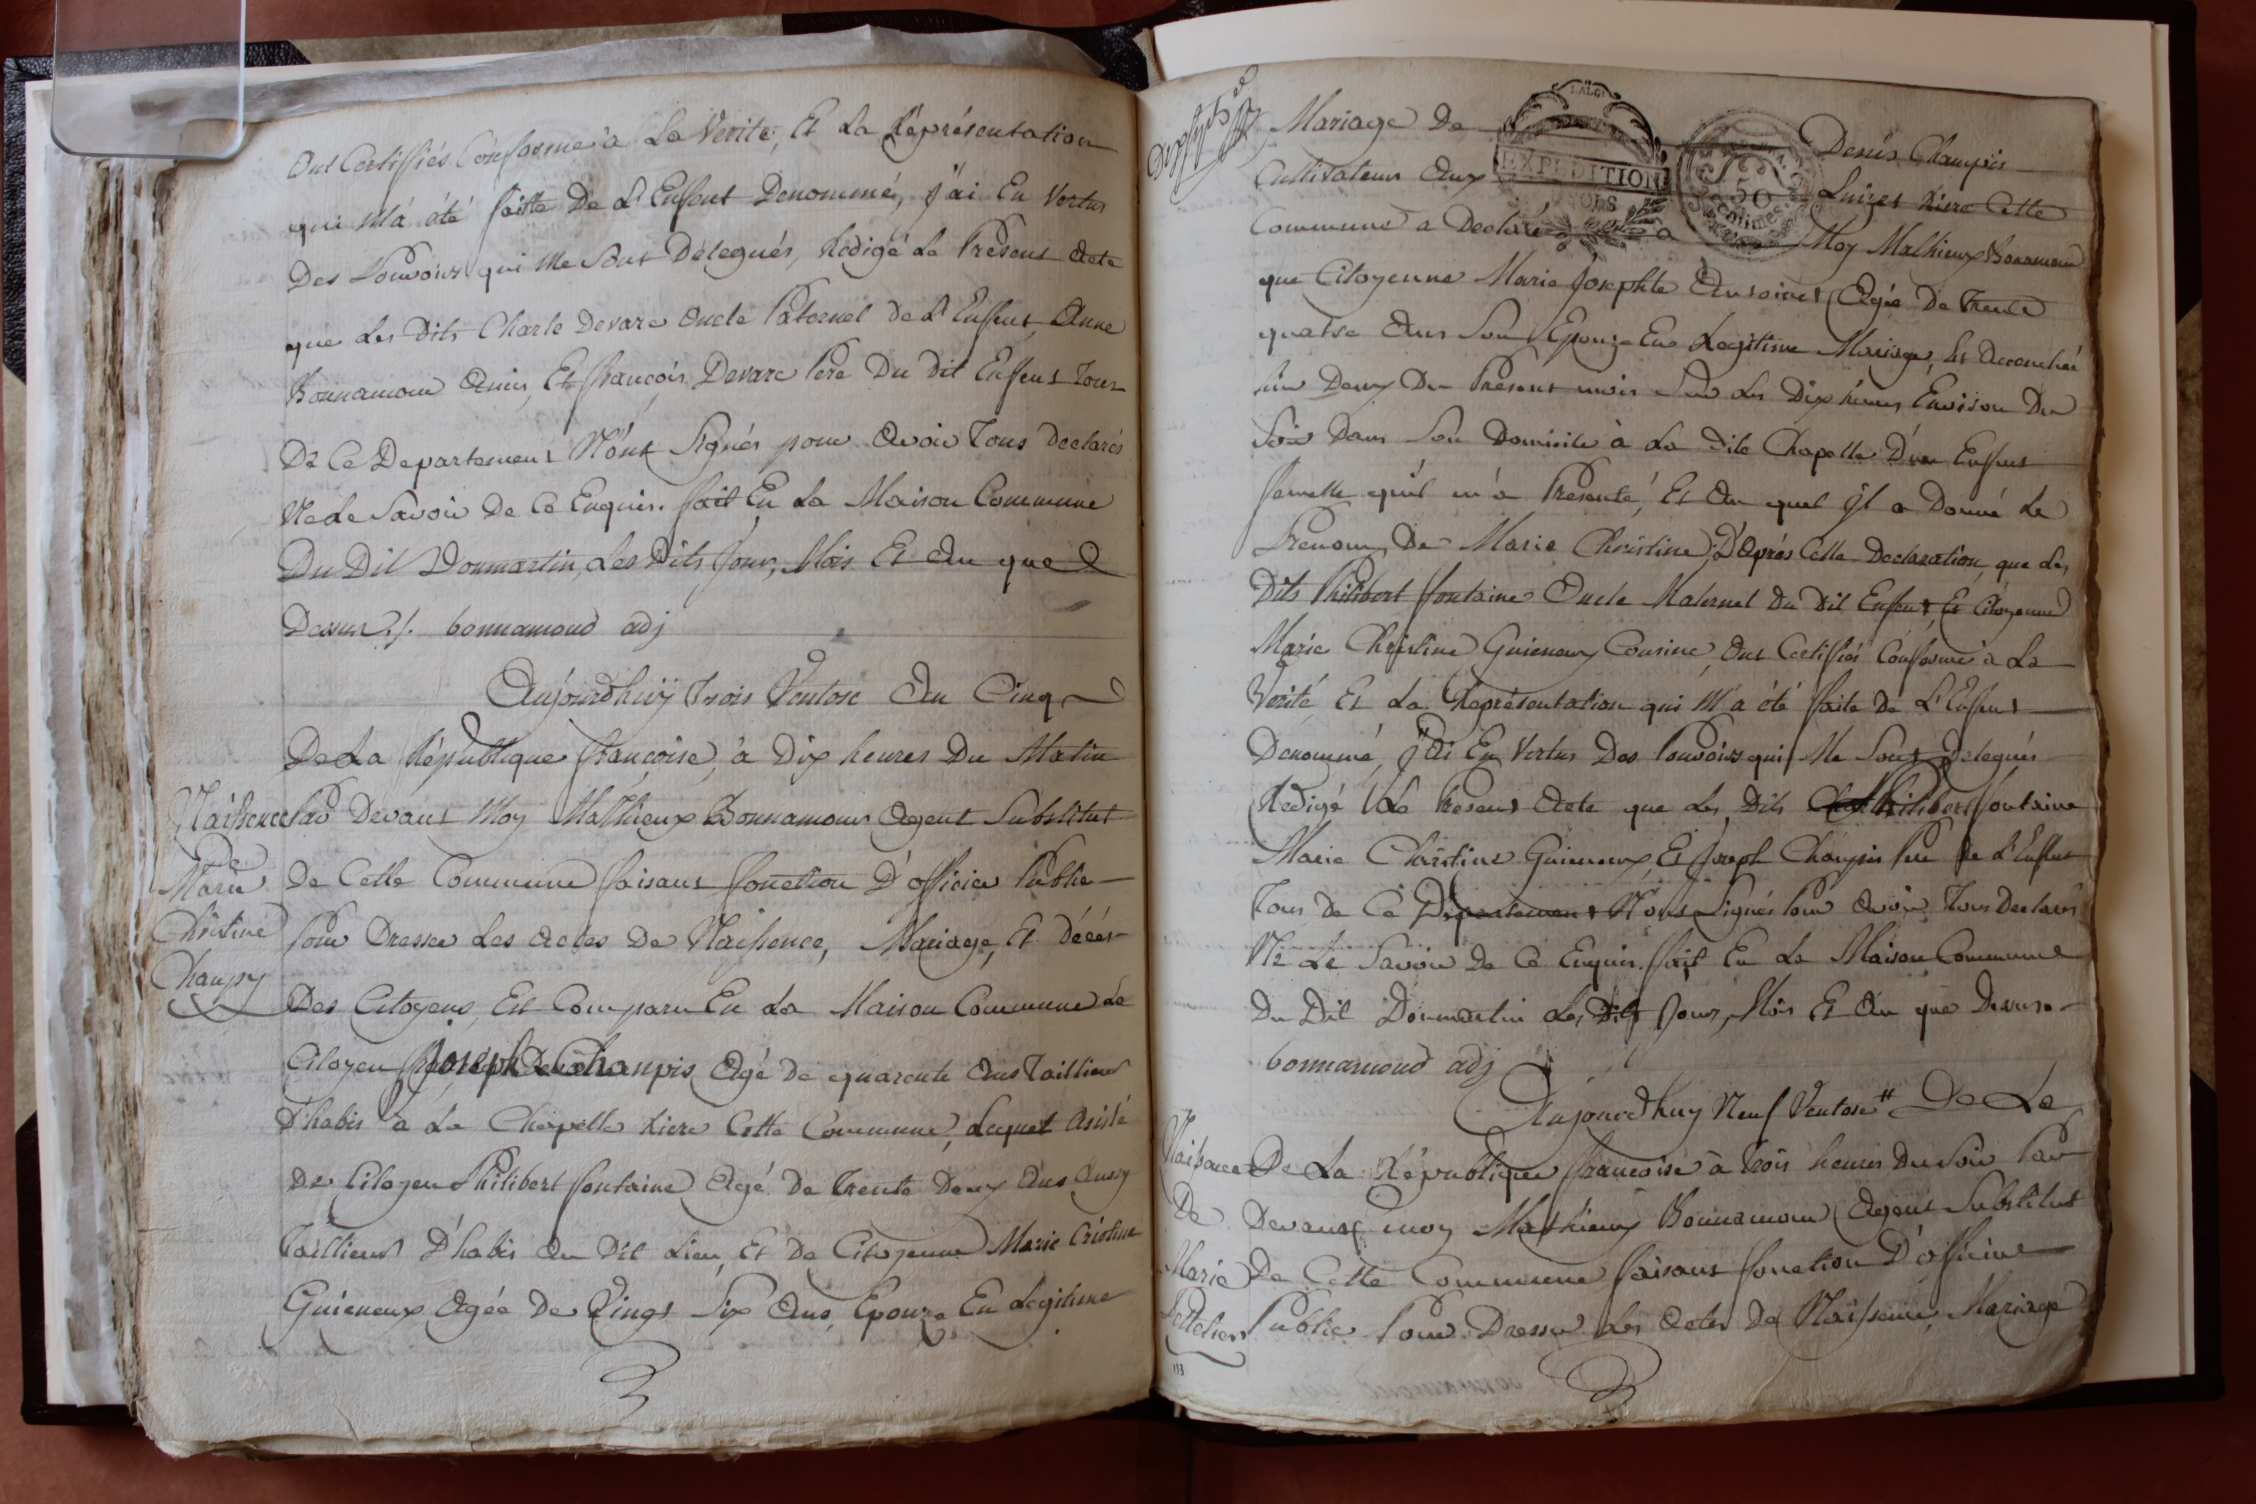 Ont Certiffiés Conforme à La Verité, Et La Réprésentation
qui M'a été faitte De L'Enfent Denommé, j'ai En Vertus
Des Pouvoirs qui Me Sont Délegués, Rédigé Le Présent Acte
que Les Dits Charle Devare Oncle Paternel De L'Enfent, Anne
Bonnamour Amis, Et françois Devarc Pere Du Dit Enfent Tous
De Ce Departement N'ont Signés pour Avoir Tous Declarés
Ne Le Savoir De Ce Enquis. fait En La Maison Commune
Du Dit Dommartin, Les Dits Jour, Mois Et An que
Dessus ./. bonnamoud adj
Aujourdhuÿ Trois Ventose An Cinq
De La République françoise, à Dix heures Du Matin
Naissence Par Devant Moy Mathieux Bonnamour Agent Substitut
De
Marie De Cette Commune faisant fonction D'officier Public
Christine Pour Dresser Les Actes De Naissence, Mariage, Et Décés
Chanpy Des Citoyens, Est Comparu En La Maison Commune Le
Citoyen Joseph Chanpis Agé De quarente Ans Tailleur
D'habis à La Chapelle Riere Cette Commune, Lequel Asisté
De Citoyen Philibert fontaine Agé De Trente Deux Ans Aussy
Tailleur D'habis Au Dit Lieu, Et De Citoyenne Marie Cristine
Guieneux Agée De Vingt Six Ans, Epouze En Légitime
Mariage De Denis Champis
Cultivateur Aux Luizet Riere Cette
Commune a Declaré a Moy Mathieux Bonnamour
que Citoyenne Marie Josephte Agée De Trente
quatre Ans Son Epouze En Legitime Mariage, Est Accouchée
Du Présent mois Sur Les Dix heures Environ Du
Soir Dans Son Domicile à La Dite Chapelle D'un Enfent
femelle qu'il m'a Présenté, Et Au quel Il a Donné Le
Prenom De Marie Christine, D'Aprés Cette Declaration, que Les
Dits Philibert fontaine Oncle Maternel Du Dit Enfent, Et Citoyenne
Marie Christine Guieneux Cousine, Ont Certiffiés Conforme à La
Verité Et La Réprésentation qui M'a été faite De L'Enfent
Denommé, J'Ai En Vertus Des Pouvoirs qui Me Sont Delegués
Redigé Le Present Acte que Les Dits Philibert fontaine
Marie Christine Guieneux, Et Joseph Chanpis Pere De L'Enfent
Tous De Ce Departement N'ont Signés Pour Avoir Tous Declarés
Ne Le Savoir De Ce Enquis. fait En La Maison Commune
Du Dit Dommartin Les Dits Jour, Mois Et An que Dessus
bonnamoud adj
Aujourdhuy Neuf Ventose # De La
Naissance De La République françoise à Trois heures Du Soir Par
De Devant moy Mathieux Bonnamour Agent Substitut
Marie De Cette Commune faisant fonction D'officier
Public Pour Dresser Les Actes De Naissence, Mariage
EXPÉDITION
50
Centimes